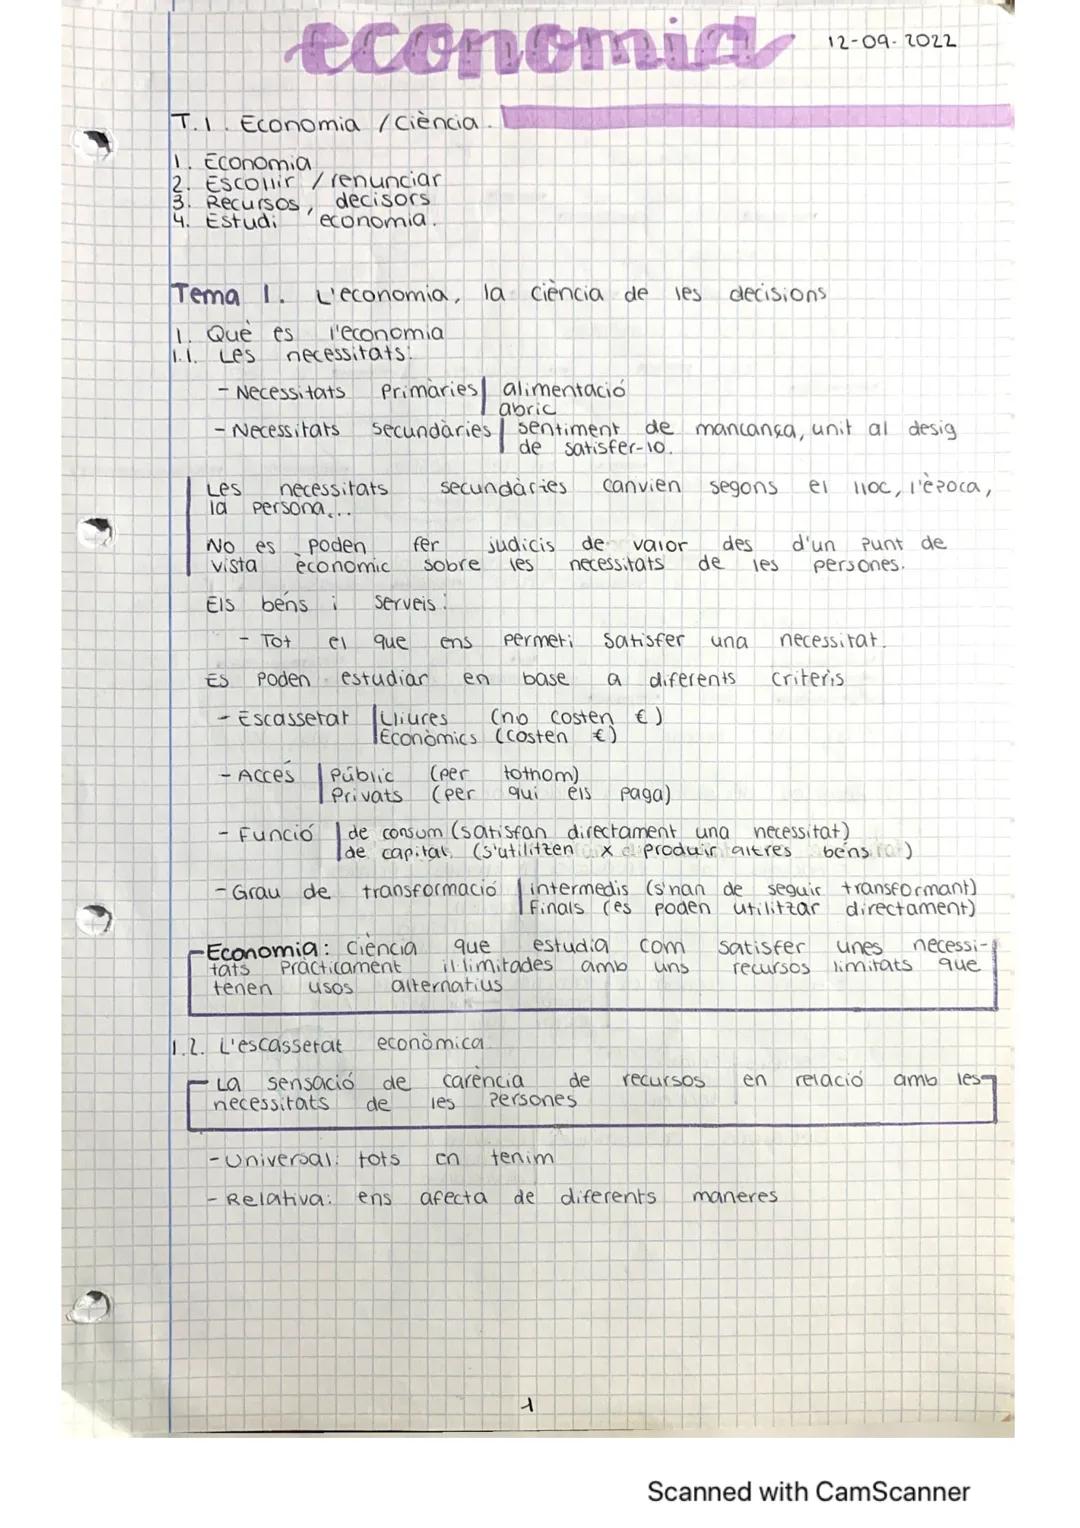 economia
12-09-2022
T.1. Economia / Ciència.
1. Economia
2. Escollir / renunciar
3. Recursos, decisors
4. Estudi economia.
Tema 1. L'economia, la ciència de les decisions
1. Què es l'economia
1.1. Les necessitats:
- Necessitats Primàries | alimentació
abric
- Necessitats secundàries | sentiment de mancança, unit al desig
de satisfer-lo.
Les necessitats secundàries canvien segons el lloc, l'època,
la persona...
No es poden fer judicis de valor des d'un punt de
vista econòmic sobre les necessitats de les persones.
Els béns i serveis:
- Tot el que ens permeti satisfer una necessitat.
Es poden estudiar en base a diferents criteris
- Escassetat | Lliures (no costen €)
Econòmics (costen €)
- Accés | Públic (per tothom)
Privats (per qui els paga)
- Funció | de consum (satisfan directament una necessitat)
de capital (s'utilitzen x produir altres béns)
- Grau de transformació | intermedis (s'han de seguir transformant)
Finals (es poden utilitzar directament)
Economia: Ciència que estudia com satisfer unes necessi-
tats Pràcticament il·limitades amb uns recursos limitats que
tenen usos alternatius
1.2. L'escassetat econòmica
La sensació de carència de recursos en relació amb les
necessitats de les persones
- Universal: tots en tenim
- Relativa: ens afecta de diferents maneres
1
Scanned with CamScanner